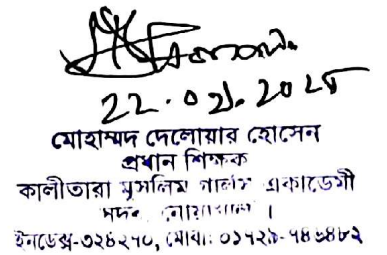 22.01.2025
মোহাম্মদ দেলোয়ার হোসেন
প্রধান শিক্ষক
কালীতারা মুসলিম গার্লস একাডেমী
সদর, নোয়াখালী ।
ইনডেক্স-০২৪২৭০, মোবা: ০১৭২৯-৭৪৬৪৮২